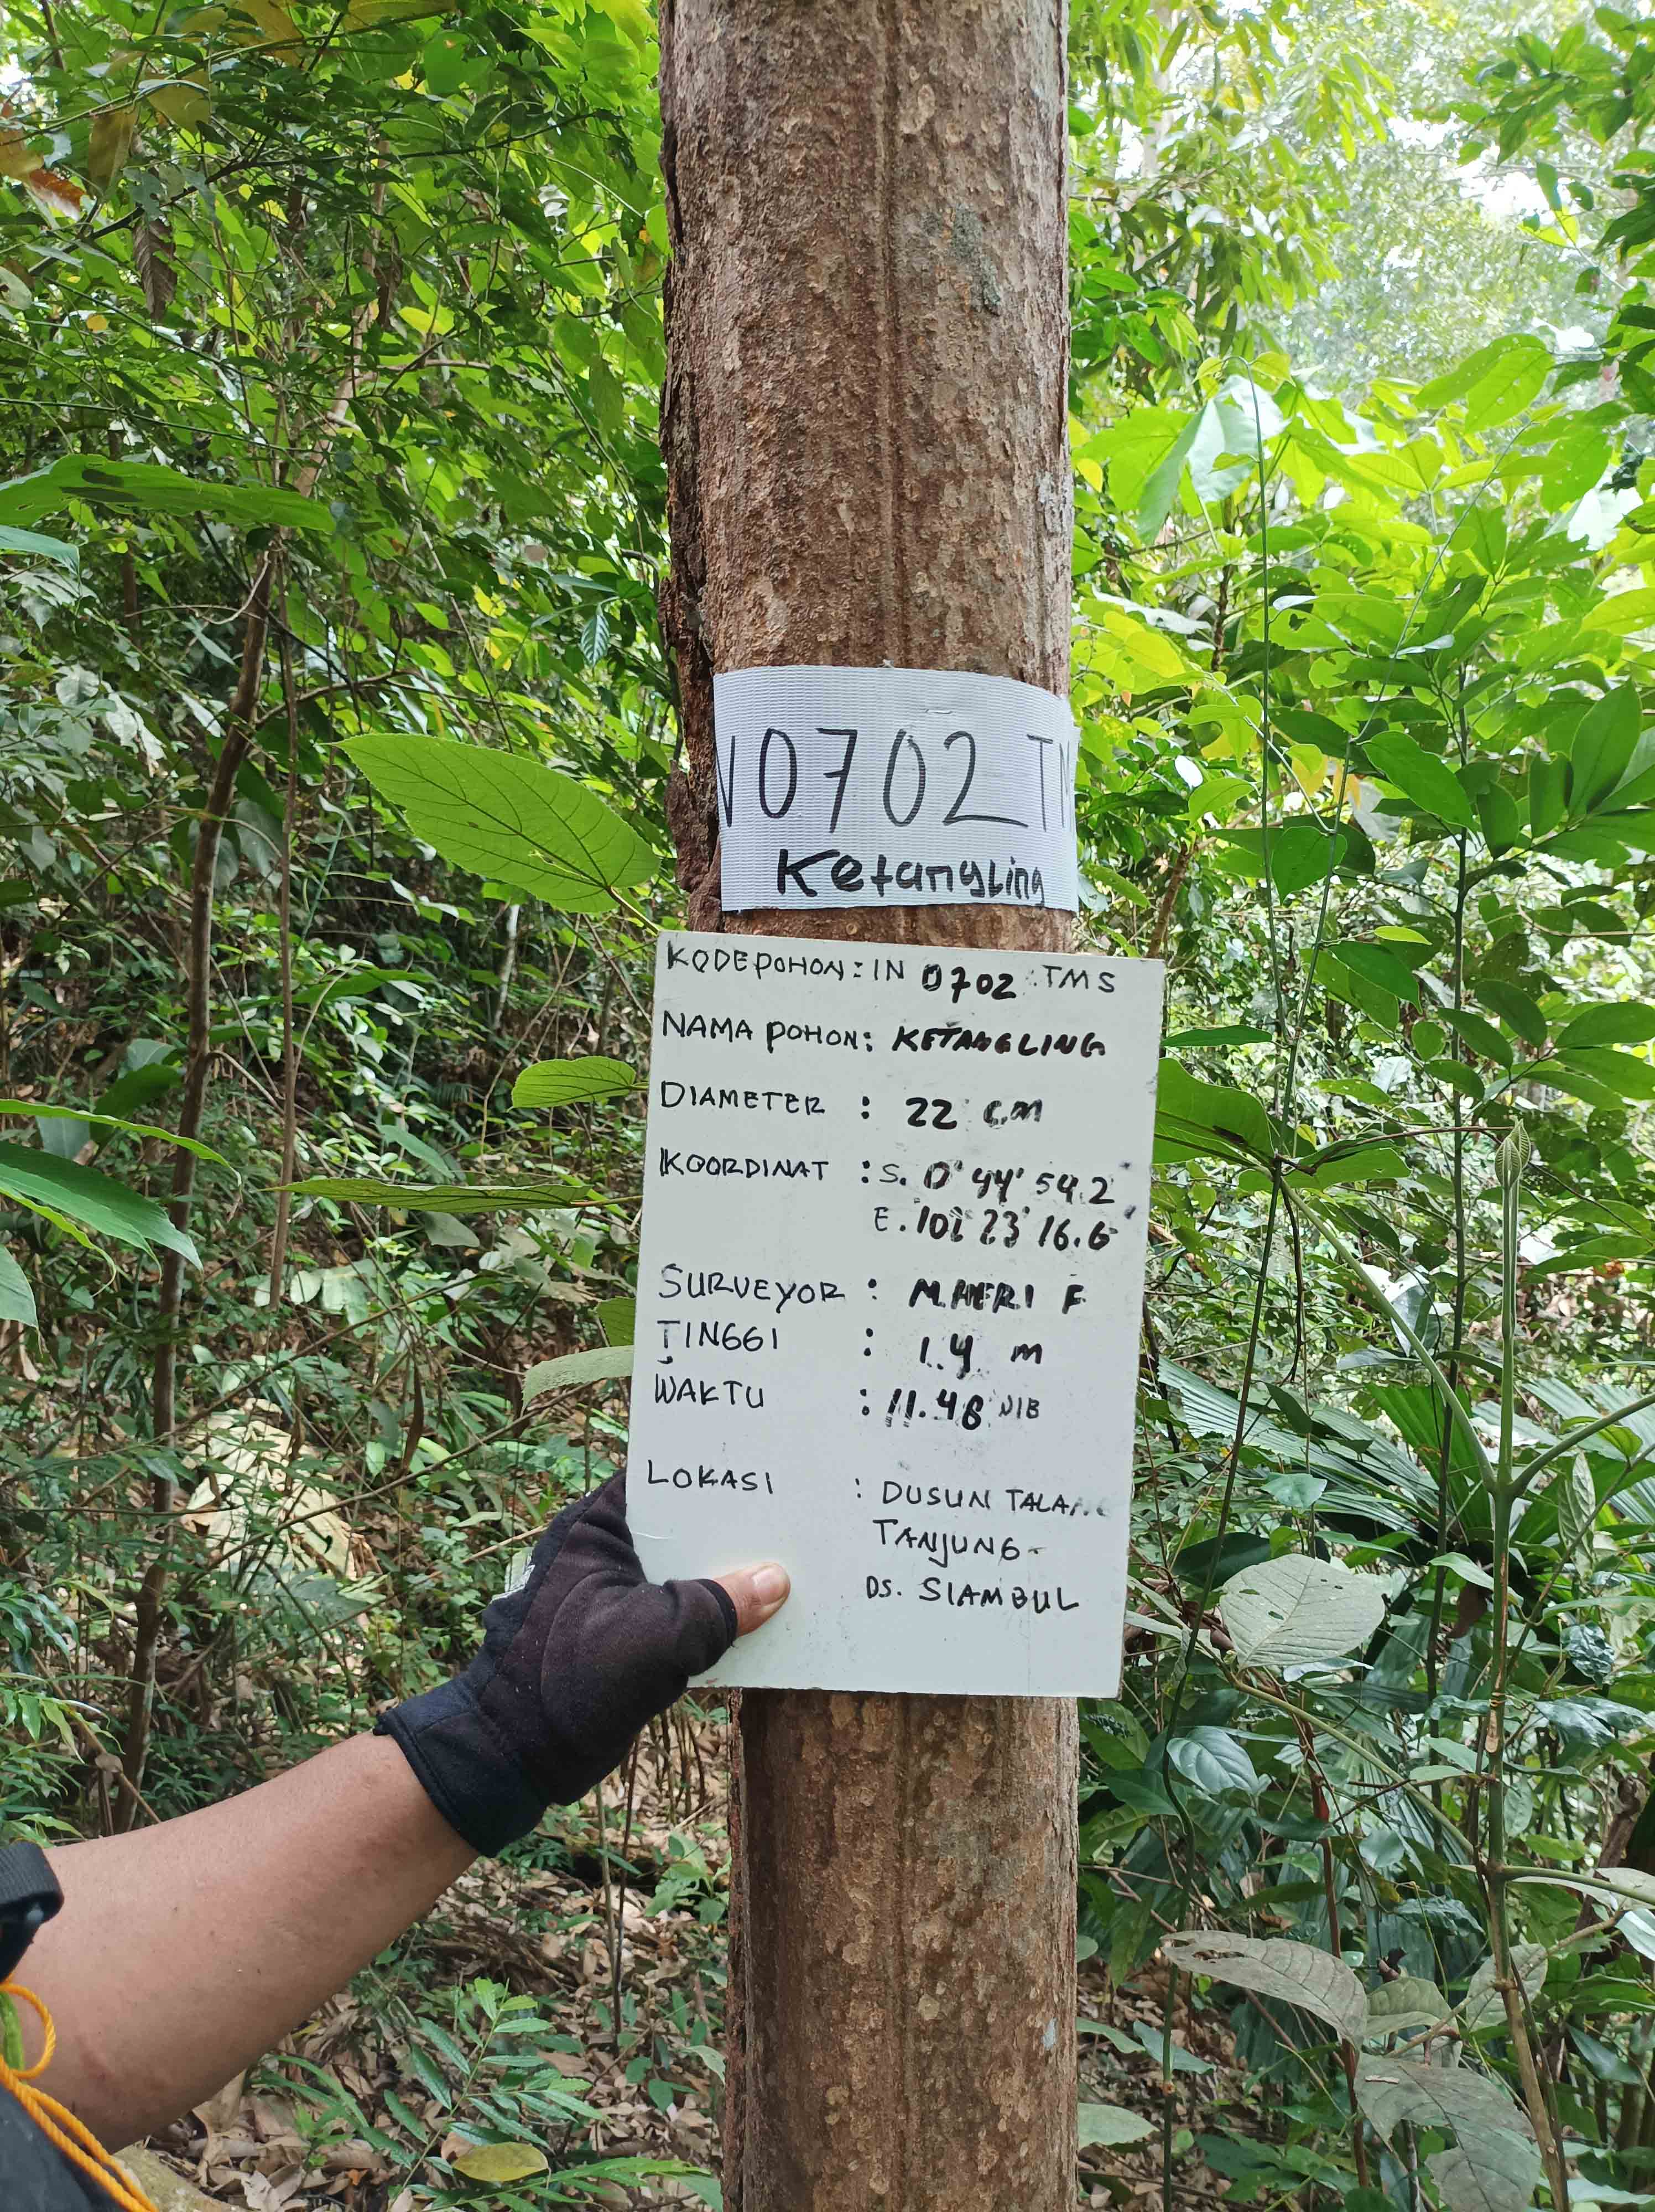 N0702 TM
Ketangling
KODE POHON : IN 0702 TMS
NAMA POHON : KETANGLING
DIAMETER : 22 CM
KOORDINAT : S. 0° 44' 54.2"
E. 102 23' 16.6"
SURVEYOR : M.HERI F
TINGGI : 1.4 m
WAKTU : 11.48 WIB
LOKASI : DUSUN TALANG
TANJUNG-
DS. SIAMBUL